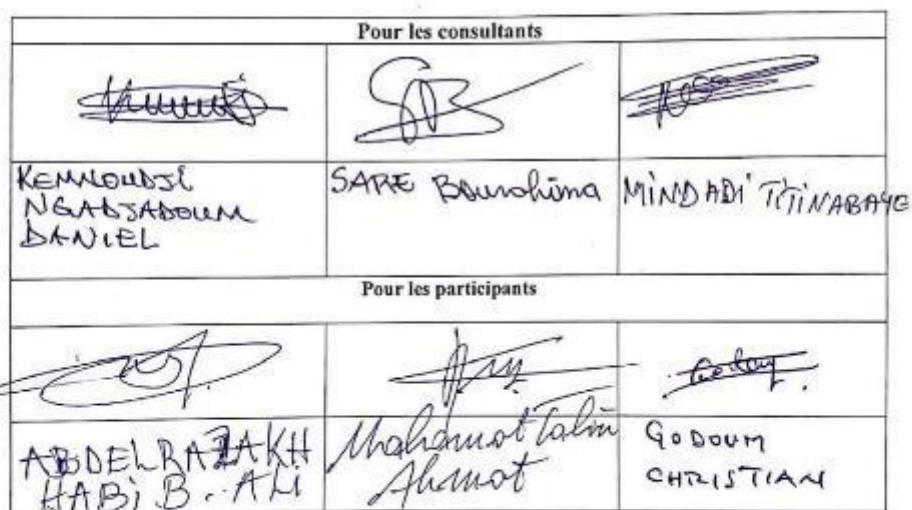 Pour les consultants
KEMNOUDJI
NGADJADOUM
DANIEL
SARE Bourohima
MINDADI TITINABAYE
Pour les participants
ABDELRAZAKH
HABIB. ALI
Mahamat Tahir
Ahmat
GODOUM
CHRISTIAN